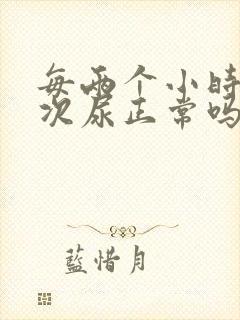 每两个小时
次尿正常吗
蓝惜月